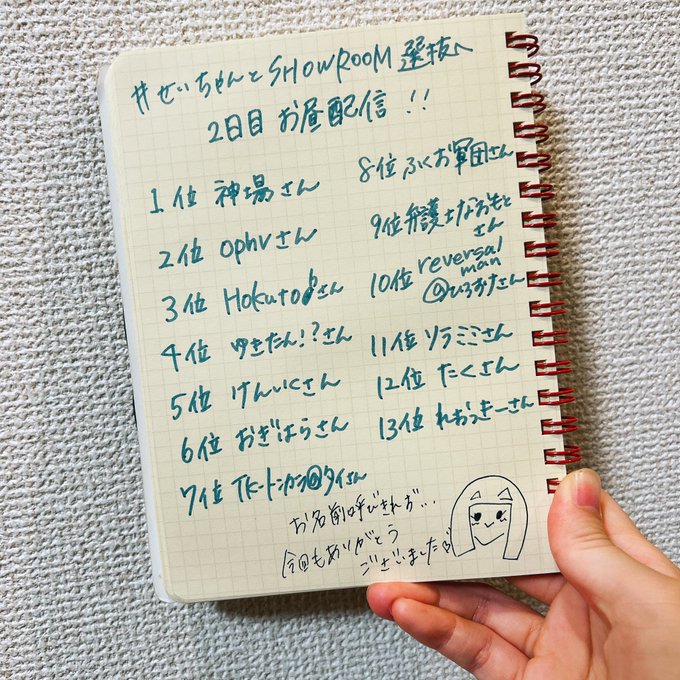 #せいちゃんとSHOWROOM選抜へ
2日目 お昼配信!!
1位 神場さん
2位 ophvさん
3位 Hokutoさん
4位 ゆきたん!?さん
5位 けんいくさん
6位 おぎはらさん
7位 TKートンカラ@タイさん
8位 ふくお軍団さん
9位 弁護士なおもと
さん
10位 reversal
man
@ひろおさん
11位 ソラミミさん
12位 たくさん
13位 れおっきーさん
お名前呼びきれず...
今回もありがとう
ございました